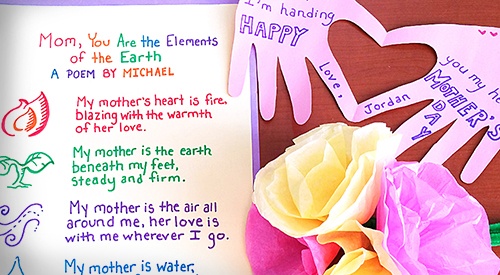 Mom, You Are the Elements
of the Earth
A POEM BY MICHAEL
My mother's heart is fire,
blazing with the warmth
of her love.
My mother is the earth
beneath my feet,
steady and firm.
My mother is the air all
around me, her love is
with me wherever I go.
My mother is water,
I'm handing
HAPPY
Love,
Jordan
you my he
MOTHER'S
DAY